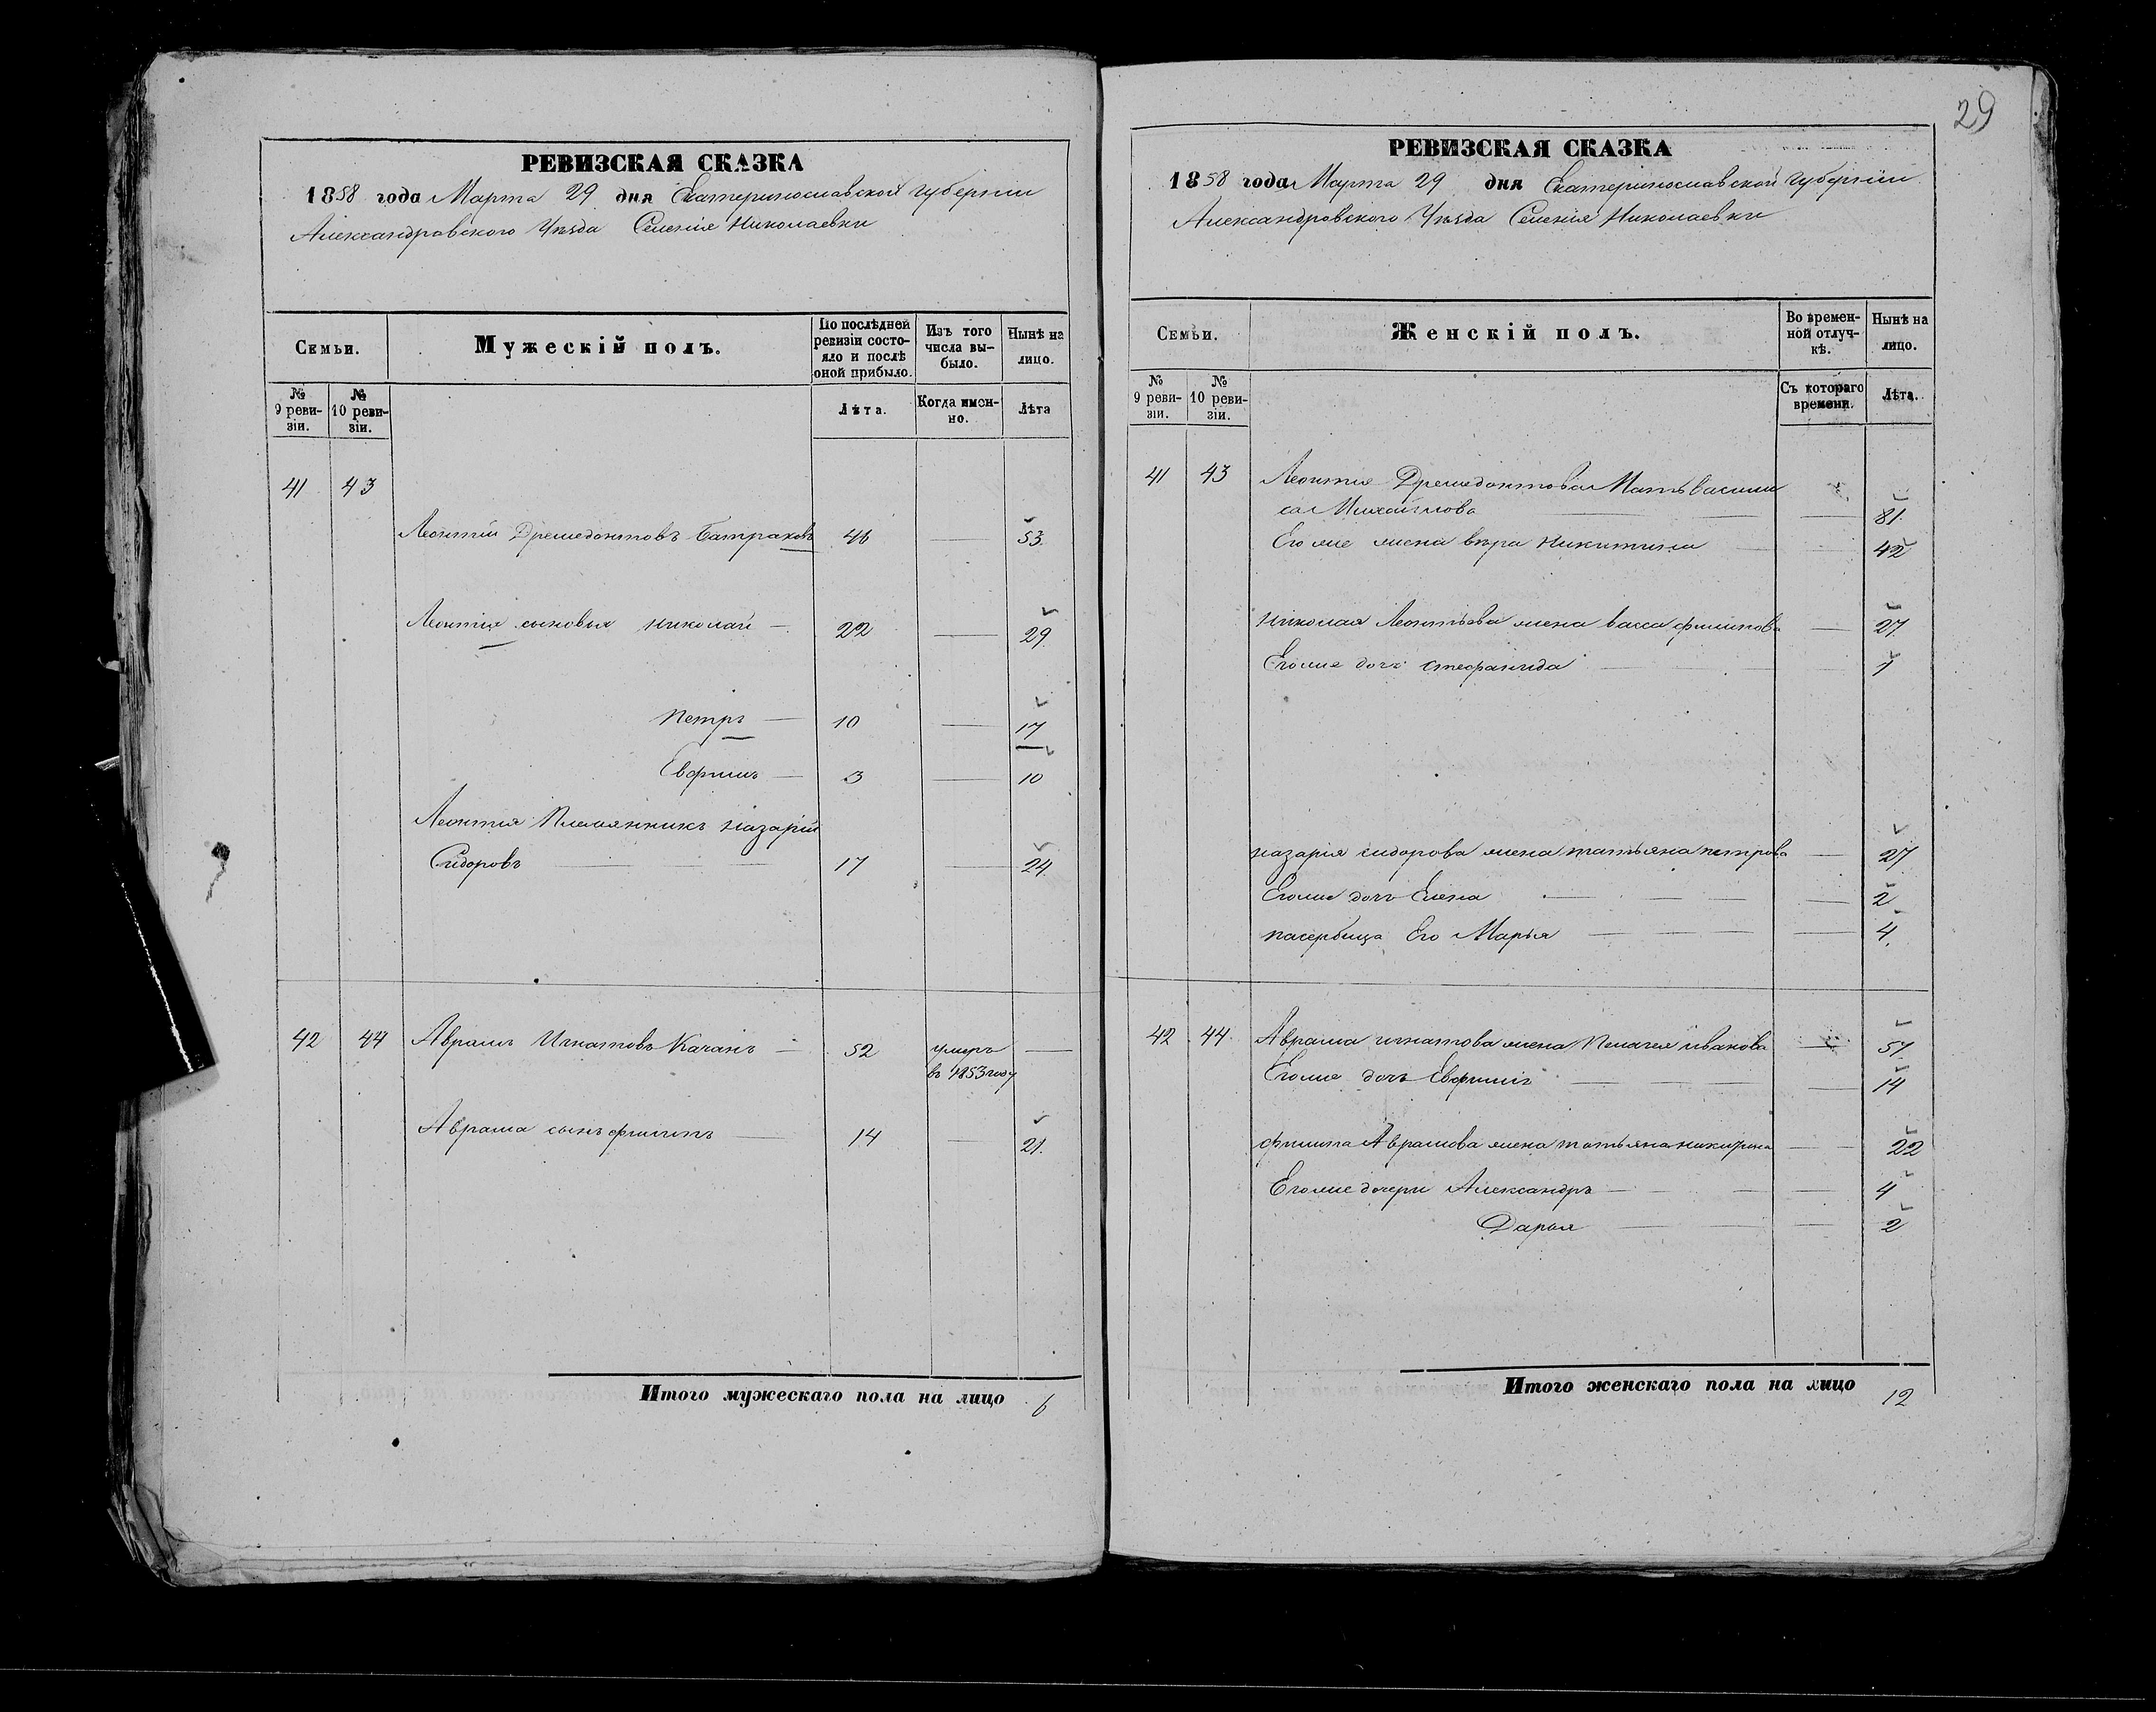 29
РЕВИЗСКАЯ СКАЗКА
1858 года Марта 29 дня Екатеринославской губернии
Александровского Уѣзда Селенія Николаевки
Семьи.
Мужескій полъ.
По послѣдней ревизіи состояло и послѣ оной прибыло.
Изъ того числа выбыло.
Нынѣ на лицо.
№ 9 ревизіи.
№ 10 ревизіи.
Лѣта.
Когда именно.
Лѣта
41 43
Леонтій Батраковъ 46 — 53.
Леонтія сыновья Николай — 22 — 29.
Петръ — 10 — 17
Евфимъ — 3 — 10
Леонтія Племянникъ Назарій
Сидоровъ — 17 — 24.
42 44 Аврамъ Игнатовъ Качанъ — 52 умеръ —
въ 1853 году
Аврама сынъ Филипъ — 14 — 21.
Итого мужескаго пола на лицо 6
РЕВИЗСКАЯ СКАЗКА
1858 года Марта 29 дня Екатеринославской Губерніи
Александровского Уѣзда Селенія Николаевки
Семьи.
Женскій полъ.
Во временной отлучкѣ.
Нынѣ на лицо.
№ 9 ревизіи.
№ 10 ревизіи.
Съ котораго времени.
Лѣта.
41 43 Леонтія Мать Васили
са Михайлова — 81.
Его же жена вѣра Никитина — 42
Николая Леонтьева жена васса филипова — 27.
Его же дочь Стефанида — 1
назарія сидорова жена татьяна петрова — 27
Его же дочь Елена — 2
пасербица Его Марья — 4.
42 44 Аврама игнатова жена Пелагея иванова — 51.
Его же дочь Евфимія — 14
филипа Аврамова жена татьяна — 22
Его же дочери Александръ — 4
Дарья — 2
Итого женскаго пола на лицо 12